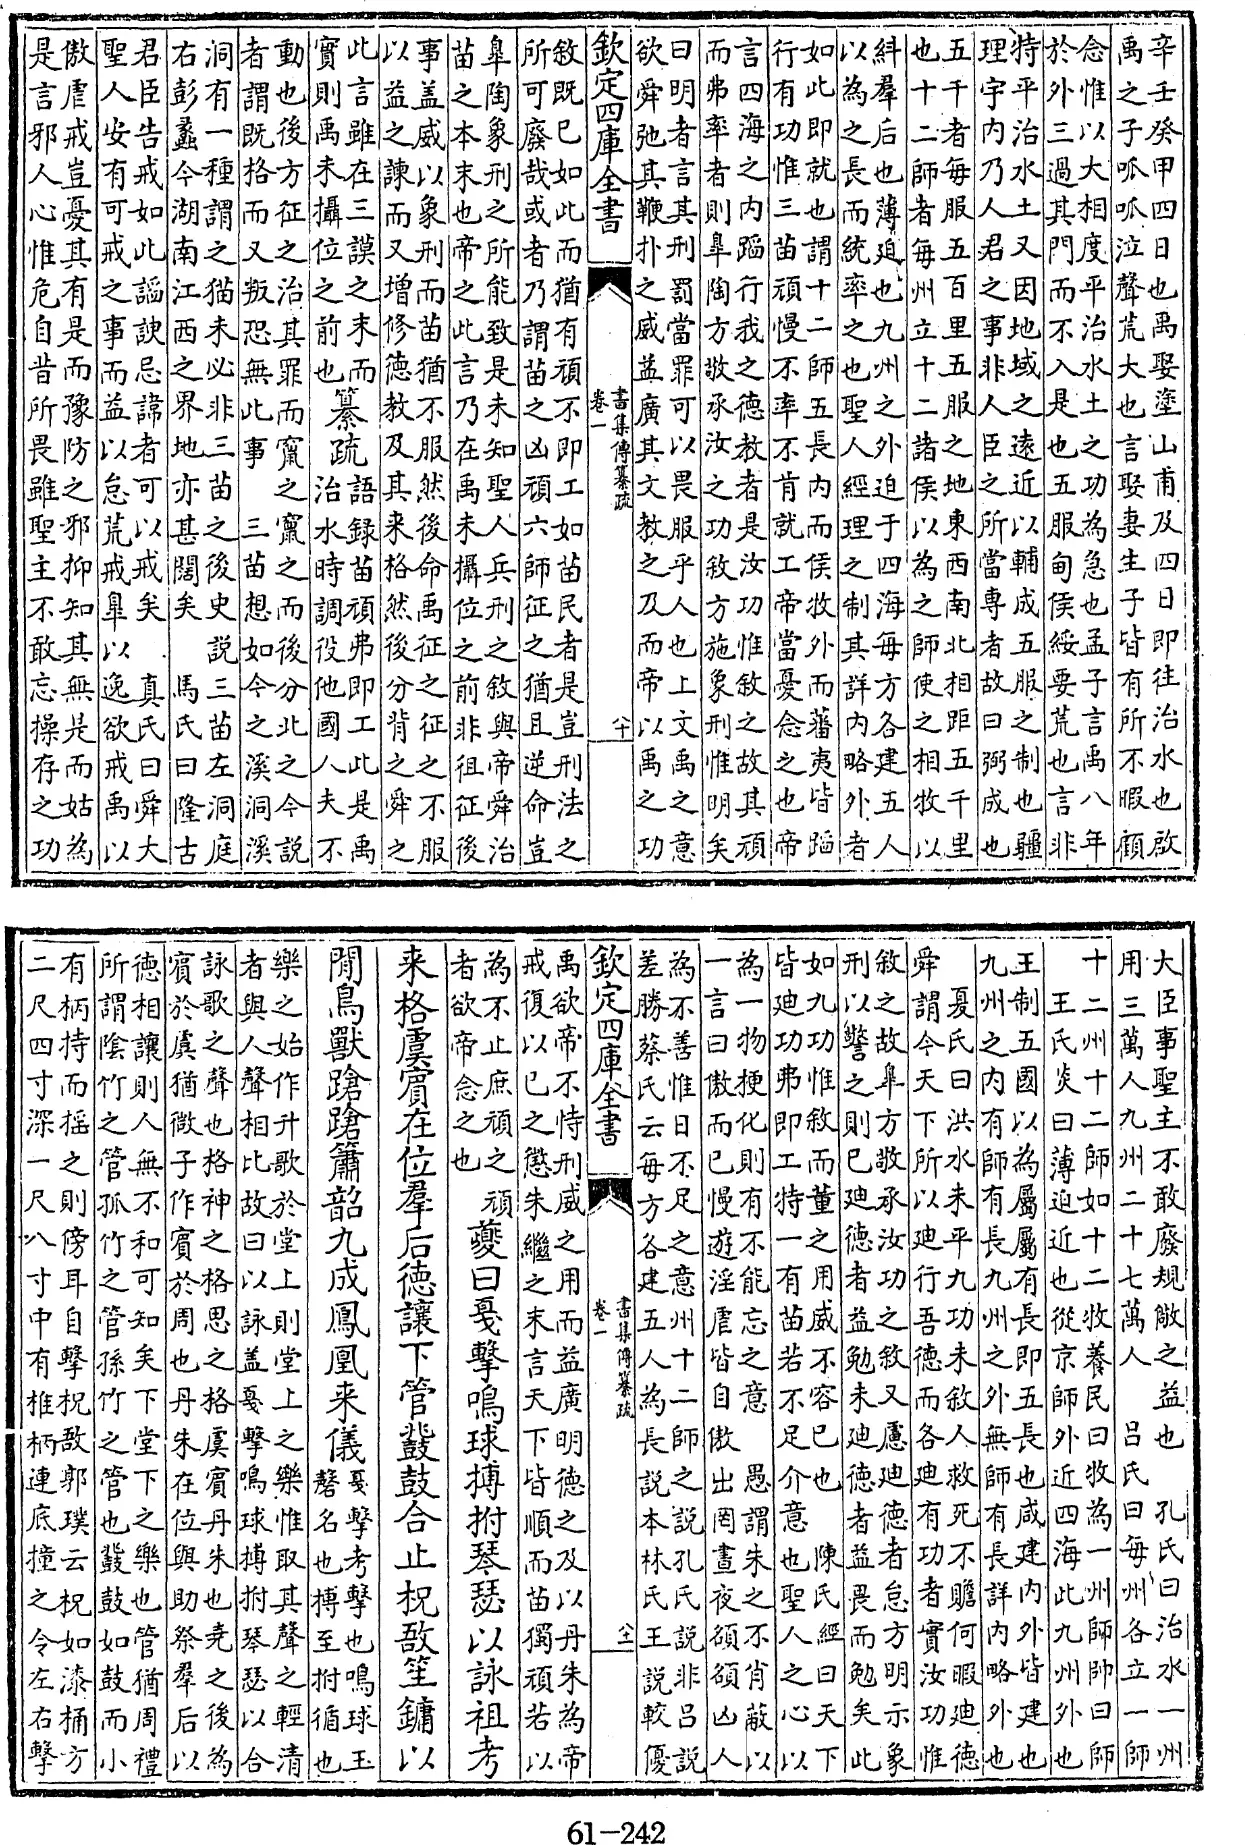 辛壬癸甲四日也禹娶塗山甫及四日即往治水也啟
禹之子呱呱泣聲荒大也言娶妻生子皆有所不暇顧
念惟以大相度平治水土之功為急也孟子言禹八年
於外三過其門而不入是也五服甸侯綏要荒也言非
特平治水土又因地域之遠近以輔成五服之制也疆
理宇内乃人君之事非人臣之所當専者故曰弼成也
五千者每服五百里五服之地東西南北相距五千里
也十二師者每州立十二諸侯以為之師使之相牧以
糾羣后也薄迫也九州之外迫于四海每方各建五人
以為之長而統率之也聖人經理之制其詳内略外者
如此即就也謂十二師五長内而侯牧外而蕃夷皆蹈
行有功惟三苗頑慢不率不肯就工帝當憂念之也帝
言四海之内蹈行我之德教者是汝功惟敘之故其頑
而弗率者則臯陶方敬承汝之功敘方施象刑惟明矣
曰明者言其刑罰當罪可以畏服乎人也上文禹之意
欲舜弛其鞭扑之威益廣其文教之及而帝以禹之功
欽定四庫全書
書集傳纂疏
卷一
八十
敘既已如此而猶有頑不即工如苗民者是豈刑法之
所可廢哉或者乃謂苗之凶頑六師征之猶且逆命豈
臯陶象刑之所能致是未知聖人兵刑之敘與帝舜治
苗之本末也帝之此言乃在禹未攝位之前非徂征後
事盖威以象刑而苗猶不服然後命禹征之征之不服
以益之諫而又增修德教及其来格然後分背之舜之
此言雖在三謨之末而
實則禹未攝位之前也
纂疏
語録苗頑弗即工此是禹
治水時調役他國人夫不
動也後方征之治其罪而竄之竄之而後分北之今説
者謂既格而又叛恐無此事 三苗想如今之溪洞溪
洞有一種謂之猫未必非三苗之後史説三苗左洞庭
右彭蠡今湖南江西之界地亦甚闊矣 馬氏曰隆古
君臣告戒如此謳諛忌諱者可以戒矣 真氏曰舜大
聖人安有可戒之事而益以怠荒戒臯以逸欲戒禹以
傲虐戒豈憂其有是而豫防之邪抑知其無是而姑為
是言邪人心惟危自昔所畏雖聖主不敢忘操存之功
大臣事聖主不敢廢規儆之益也 孔氏曰治水一州
用三萬人九州二十七萬人 吕氏曰每州各立一師
十二州十二師如十二牧養民曰牧為一州師帥曰師
王氏炎曰薄迫近也從京師外近四海此九州外也
王制五國以為屬屬有長即五長也咸建内外皆建也
九州之内有師有長九州之外無師有長詳内略外也
夏氏曰洪水未平九功未敘人救死不贍何暇廸德
舜謂今天下所以廸行吾德而各廸有功者實汝功惟
敘之故臯方敬承汝功之敘又慮廸德者怠方明示象
刑以警之則已廸德者益勉未廸德者益畏而勉矣此
如九功惟敘而董之用威不容已也 陳氏經曰天下
皆廸功弗即工特一有苗若不足介意也聖人之心以
為一物梗化則有不能忘之意 愚謂朱之不肖蔽以
一言曰傲而已慢遊淫虐皆自傲出罔晝夜頟頟凶人
為不善惟日不足之意州十二師之説孔氏説非吕説
差勝蔡氏云每方各建五人為長説本林氏王説較優
欽定四庫全書
書集傳纂疏
卷一
八十一
禹欲帝不恃刑威之用而益廣明德之及以丹朱為帝
戒復以已之懲朱繼之末言天下皆順而苗獨頑若以
為不止庶頑之頑
者欲帝念之也
夔曰戛擊鳴球搏拊琴瑟以詠祖考
来格虞賓在位羣后德讓下管鼗鼓合止柷敔笙鏞以
閒鳥獸蹌蹌簫韶九成鳳凰来儀
戛擊考擊也鳴球玉
磬名也搏至拊循也
樂之始作升歌於堂上則堂上之樂惟取其聲之輕清
者與人聲相比故曰以詠盖戛擊鳴球搏拊琴瑟以合
詠歌之聲也格神之格思之格虞賓丹朱也堯之後為
賓於虞猶微子作賓於周也丹朱在位與助祭羣后以
德相讓則人無不和可知矣下堂下之樂也管猶周禮
所謂陰竹之管孤竹之管孫竹之管也鼗鼓如鼓而小
有柄持而揺之則傍耳自擊柷敔郭璞云柷如漆桶方
二尺四寸深一尺八寸中有椎柄連底撞之令左右擊
61-242